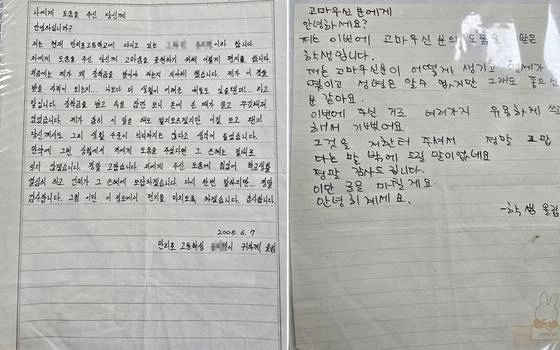 나에게 도움을 주신 당신께
안녕하십니까?
저는 현재 만리포고등학교에 다니고 있는 이라 합니다.
저에게 도움을 주신 당신께 고마움을 표현하기 위해 이렇게 편지를 씁니다.
처음에는 제가 왜 장학금을 받아야 하는지 의아해 했습니다. 제가 이 것을
받을 자격이 되는지... 나보다 더 생활이 어려운 애들도 있을텐데... 라고
말입니다. 장학금을 받고 속을 잠깐 보니 돈이 꽤 많고 무섭게까지
없었습니다. 제가 감히 이 돈을 써도 될지모르겠지만 이걸 보고 왠지
당신께서도 그리 생활 수준이 넉넉하지는 않다고 생각이 들었습니다.
만약에 그런 상황에서 저에게 도움을 주셨다면 그 은혜는 절대로
잊지 않겠습니다. 정말 고맙습니다. 저에게 주신 도움에 힘입어 학교생활
열심히 하고 언젠가 그 은혜에 보답하겠습니다. 다시 한번 말하지만... 정말
감사합니다. 그럼 이만 이 정도에서 편지를 마치도록 하겠습니다. 감사합니다.
2005. 6. 7
만리포 고등학생 이 귀하께 올림
고마우신 분에게
안녕하세요?
저는 이번에 고마우신 분의 도움을 받은
학생입니다.
저는 고마우신분이 어떻게 생기고 연세가
몇이고 성함은 알수 없지만 그래도 좋으신
분 같아요.
이번에 주신 거로 여러가지 유용하게 쓰고
해서 기뻤어요.
그것을 저한테 주셔서 정말 고맙
다는 말 밖에 드릴 말이없네요
정말 감사드립니다.
이만 글을 마칠게요.
안녕히계세요.
-학생 올림